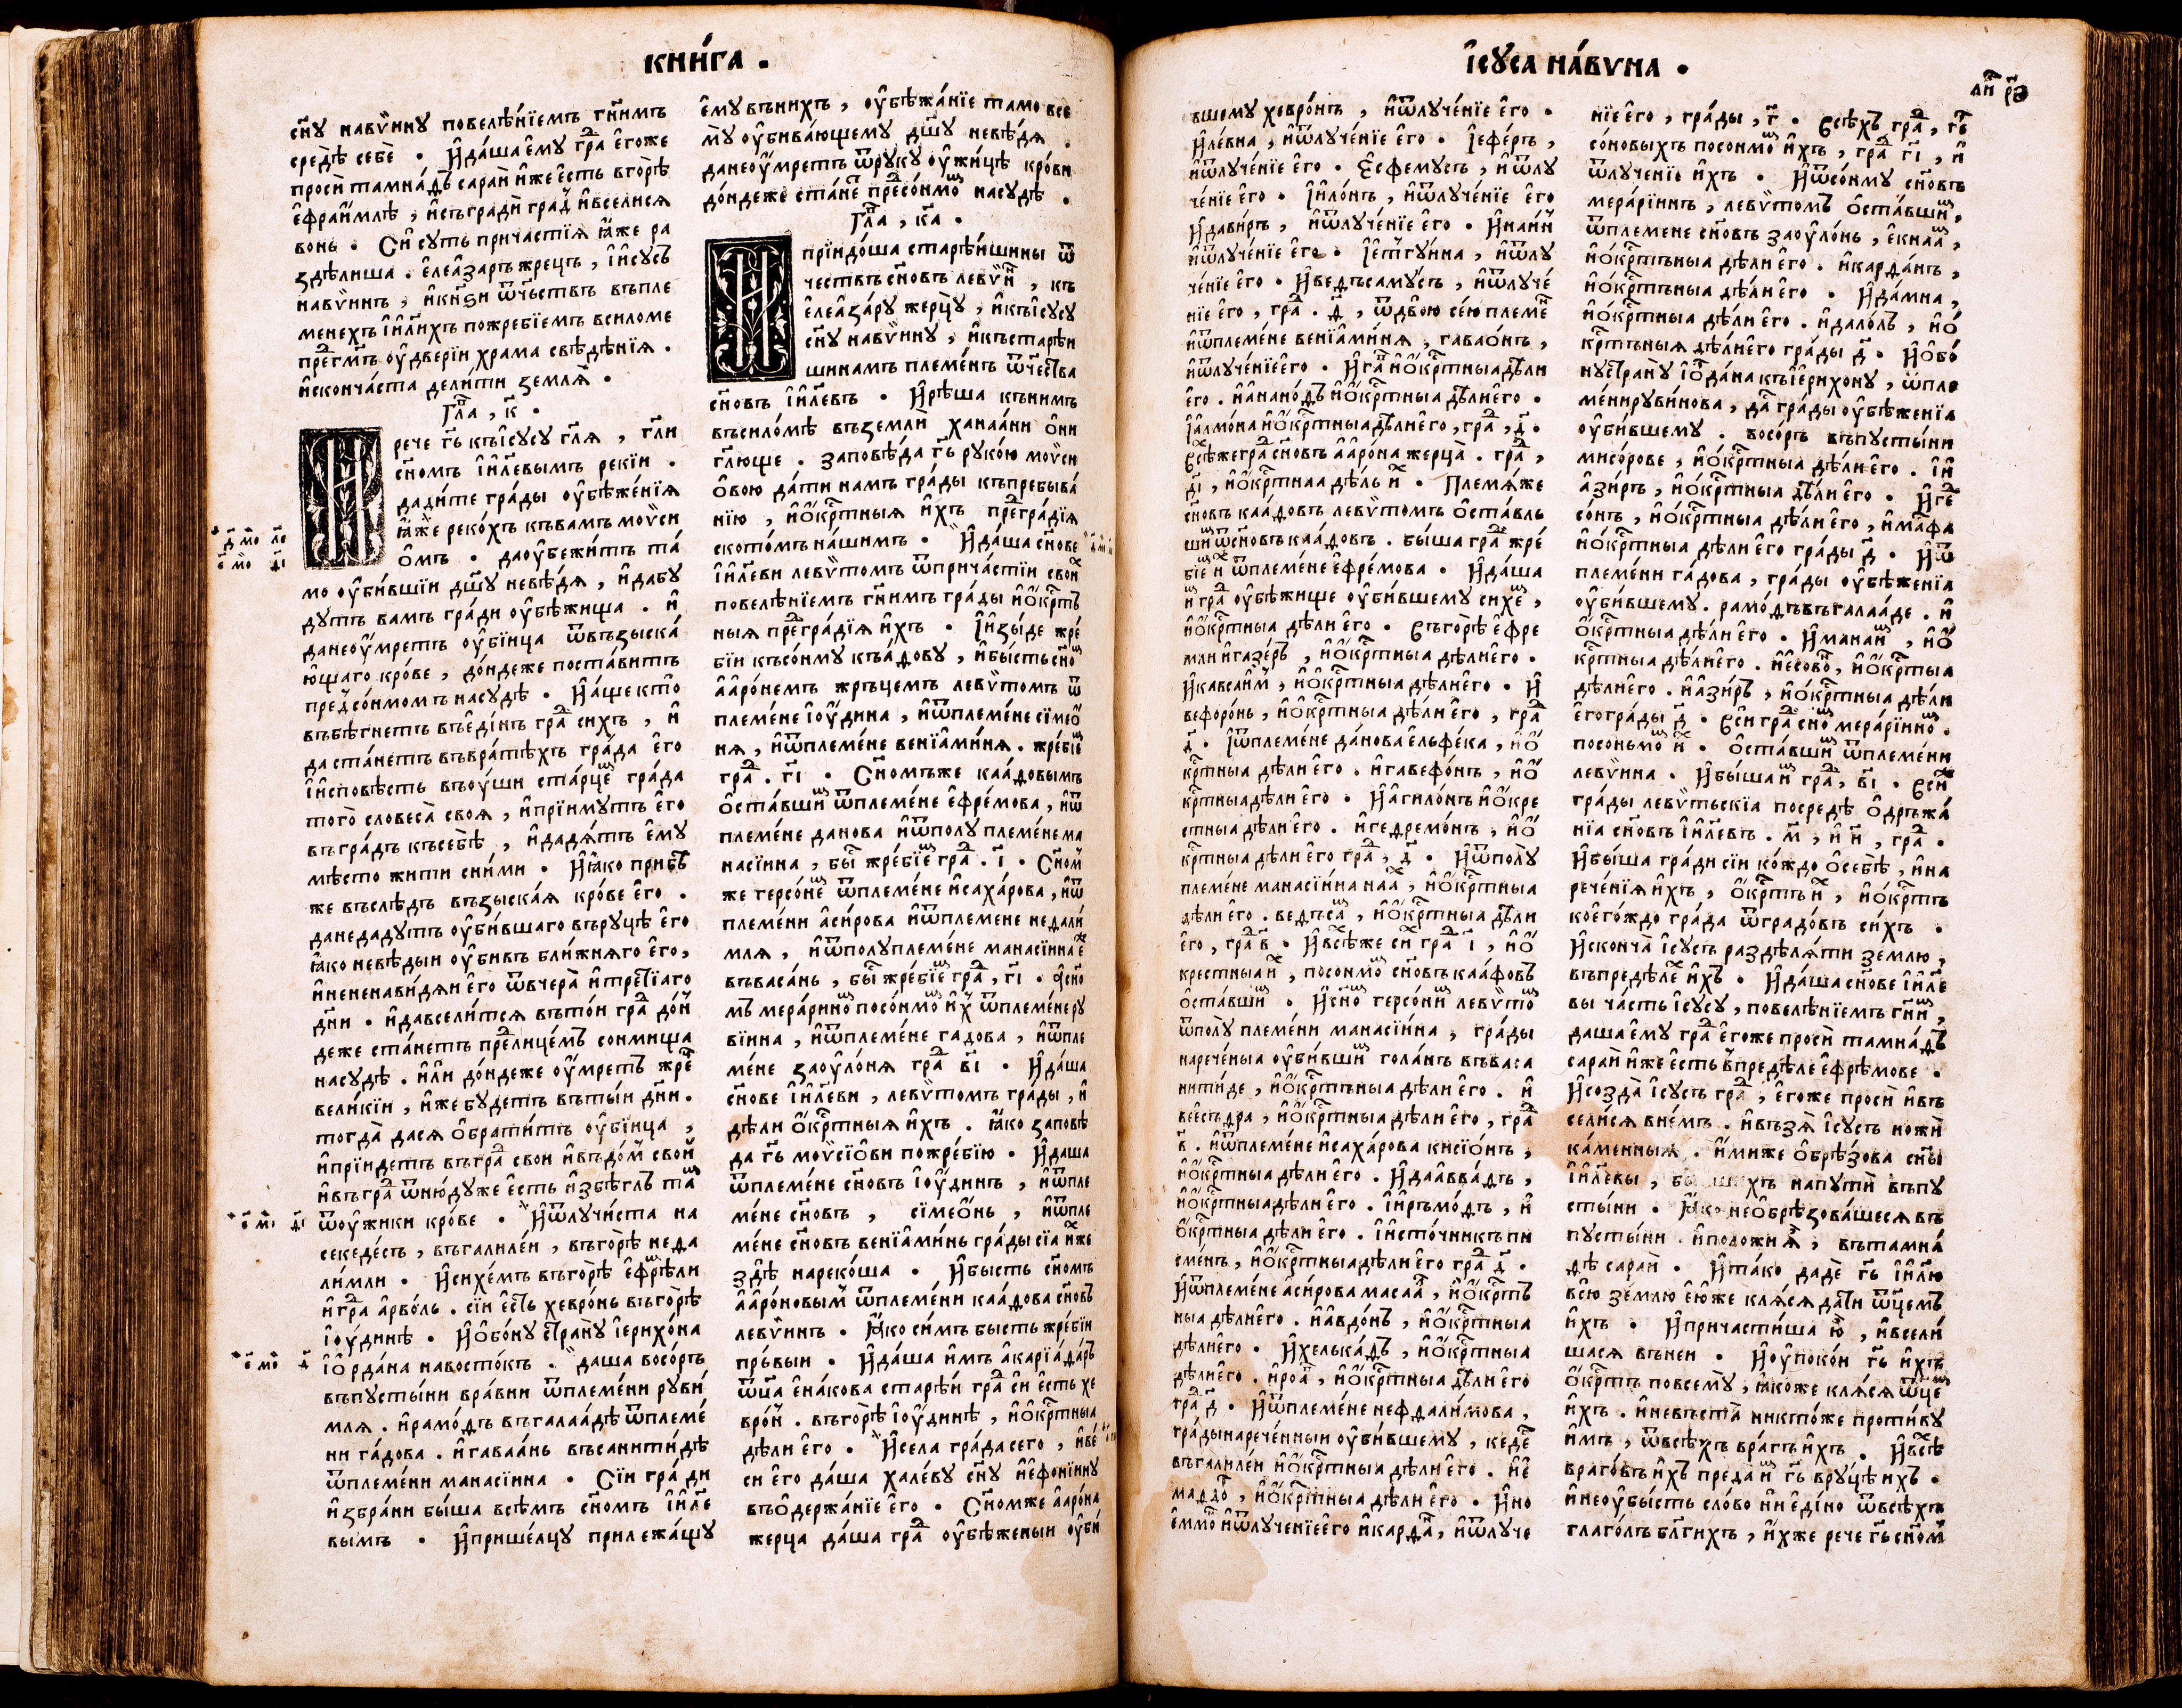 КНИ́ГА .
сн҃у навѵ̈ину повелѣ́нїемъ гн҃имъ
средѣ себѐ . И҆да́ша е҆му гра̑ е҆гоже
просѝ тамна́дъ сарай и҆же е҆сть вгорѣ
е҆фраи́млѣ , и҆съградѝ град и҆вселися
вонь . Сїи суть причастїя ꙗ҆́же ра
здѣлиша . е҆леа҆заръ жрецъ , і҆исусъ
навѵ̈инъ , и҆кнѕи ѿчьствъ въпле
менехъ і҆и҆л҃ихъ пожребїемъ всиломе
пре гм҃ъ оу҆дверїи храма свѣдѣнїя .
и҆сконча́ста дели́ти землѧ̀ .
Гла , к҃ .
И рече гь҃ къі҆сусу гл҃я , гл҃и
сн҃омъ і҆и҆л҃евымъ рекїи .
дади́те гра́ды оу҆бѣже́нїя
ꙗ҆́же реко́хъ къвамъ моѵ̈си
о҆мъ . даоу҆бежи́тъ та́
мо оу҆би́вшїи дш҃у невѣ́дя , и҆дабу
дутъ вамъ гра́ди оу҆бѣ́жища . и҆
данеоу҆́мретъ оу҆бїица ѿвъзыска́
ю҆щаго кро́ве , до́ндеже поста́витъ
пред̾со́нмомъ насудѣ . И҆а́ще кто̀
въбѣ́гнетъ въе҆ди́нъ гра̑ сихъ , и҆
да ста́нетъ въвратѣ́хъ гра́да е҆го
і҆испо́вѣсть въоу́ши ста́рце гра́да
того̀ словеса̀ своя , и҆прїимутъ е҆го
въгра́дъ къ себѣ , и҆дадя́тъ е҆му
мѣ́сто жити сни́ми . И҆ꙗ҆́ко прибѣ
же въслѣ́дъ възыска́я кро́ве е҆го .
данедаду́тъ оу҆би́вшаго въруцѣ е҆го
ꙗ҆́ко невѣ́дыи оу҆бивъ бли́жняго е҆го ,
и҆нененави́дяи е҆го ѿвчера̀ и҆третїаго
дн҃и . и҆давсели́тся въто́и гра̑ до́н
деже ста́нетъ прелице́мъ сонмища
насудѣ . и҆лѝ до́ндеже оу҆́мретъ жре
вели́кїи , и҆же бу́детъ въты́и дн҃и .
тогда̀ дася о҆брати́тъ оу҆бїица ,
и҆прїидетъ въгра̑ свои и҆въдо́м свой
и҆въгра̑ ѿню́дуже е҆сть и҆збѣглъ та
ѿоу҆́жики кро́ве . И҆ѿлучи́ста на
секеде́съ , въгалиле́и , въго́рѣ неда
ли́мли . И҆сихе́мъ въго́рѣ е҆фрѣли
и҆гра̑ а҆рво́лъ . сїи е҆сть хевро́нь въго́рѣ
і҆оу҆́динѣ . И҆о҆бо́ну страну і҆ерихо́на
і҆о҆рда́на навосто́къ . даша восо́ръ
въпусты́ни вра́вни ѿплеме́ни руви́
мля . и҆рамо́дъ въгалаа́дѣ ѿплеме́
ни га́дова . и҆гаваа́нь въсанити́дѣ
ѿплеме́ни манасїина . Сїи гра́ди
и҆збра́ни бы́ша всѣмъ сн҃омъ і҆и҆л҃е
вымъ . И҆прише́лцу прилежа́щу
е҆му вънихъ , оу҆бѣжа́нїе тамо все
му оу҆бива́ющему дш҃у невѣ́дя .
данеоу҆мретъ ѿруку оу҆жицѣ кро́ви
до́ндеже ста́не пресо́нмо насудѣ .
Гла , ка҃ .
И прїидо́ша старѣ́ишины ѿ
чествъ сн҃овъ левѵ̈и , къ
е҆леа҆за́ру жерцу , и҆къі҆сусу
сн҃у навѵ̈ину , и҆къстарѣи
шинамъ племе́нъ ѿчества
сн҃овъ і҆и҆л҃евъ . И҆рѣша кънимъ
въсило́мѣ въземлѝ ханаа́ни о҆ни
гл҃юще . заповѣ́да гь҃ руко́ю моѵ̈си
о҆вою да́ти намъ гра́ды къпребыва́
нїю , и҆о҆́крестныя и҆хъ преградїя
ското́мъ на́шимъ . И҆да́ша сн҃ове
і҆и҆л҃еви левѵ̈томъ ѿприча́стїи свои
повелѣ́нїемъ гн҃имъ гра́ды и҆о҆крст
ныя преградїя и҆хъ . І҆изы́де жре́
бїи късо́нму къа́дову , и҆бы́сть сн҃о
а҆а҆ро́немъ жръцемъ левѵ̈томъ ѿ
племе́не і҆оу҆́дина , и҆ѿплеме́не симео҆
ня , и҆ѿплеме́не венїами́ня . жре́бїе
гра̑ . гі҃ . Сн҃омъже каа́довымъ
о҆ста́вши ѿплеме́не е҆фре́мова , и҆ѿ
племе́не данова и҆ѿполу племе́нема
насїина , бы жре́бїе гра̑ . і҃ . Сн҃ом
же герсо́не ѿплеме́не и҆саха́рова , и҆ѿ
племе́ни а҆си́рова и҆ѿплемене недали́
мля , и҆ѿполуплеме́не манасїинае
въваса́нь , бы жре́бїе гра̑ , гі҃ . Асно
мъ мера́рино посо́нмо и҆х ѿплеме́неру
вїина , и҆ѿплеме́не гадова , и҆ѿпле
ме́не заоу҆ло́ня гра̑ ві҃ . И҆да́ша
сн҃ове і҆и҆л҃еви , левѵ̈томъ гра́ды , и҆
дѣли о҆́крстныя и҆хъ . ꙗ҆́ко заповѣ
да гь҃ моѵ̈сїо҆ви пожре́бїю . И҆даша
ѿплеме́не сн҃овъ і҆оу҆́динъ , и҆ѿпле
ме́не сн҃овъ , симео҆́нь , и҆ѿпле
ме́не сн҃овъ венїами́нь гра́ды сїа и҆же
здѣ̀ нареко́ша . И҆бысть сн҃омъ
а҆а҆ро́новым ѿплеме́ни каа́дова сн҃овъ
левѵ̈инъ . ꙗ҆́ко си́мъ бысть жре́бїи
пръ́выи . И҆да́ша и҆мъ а҆карїада́ръ
ѿц҃а е҆на́кова старѣи гра̑ си е҆сть хе
вро́н . въго́рѣ і҆оу҆́динѣ , и҆о҆́крстныа
дѣли е҆го . И҆села гра́да сего , и҆ве́
си е҆го да́ша хале́ву сн҃у и҆ефони́ину
въо҆держа́нїе е҆го . Сн҃омже а҆аро́на
жерца да́ша гра̑ оу҆бѣ́женыи оу҆би́
І҆СУ́СА НА́ВѴНА .
ли р҃ѳ
вшему хевро́нъ , и҆ѿлуче́нїе е҆го .
И҆ле́вна , и҆ѿлуче́нїе е҆го . І҆ефе́ръ ,
и҆ѿлуче́нїе е҆го . Е҆сфемусъ , и҆ѿлу
че́нїе е҆го . І҆ило́нъ , и҆ѿлуче́нїе е҆го
И҆дави́ръ , и҆ѿлуче́нїе е҆го . И҆наи́н
и҆ѿлуче́нїе е҆го . І҆ептгуи́на , и҆ѿлу
че́нїе е҆го . И҆ведъсаму́съ , и҆ѿлуче́
нїе е҆го , гра̑ . д҃ , ѿдвою сею племе
и҆ѿплеме́не венїами́ня , гаваѡ́нъ ,
и҆ѿлуче́нїее҆го . И҆га и҆о҆́крстныадѣли
е҆го . и҆а҆нано́дъ и҆о҆́крстныа дѣлие҆го .
І҆а҆лмо́на и҆о҆́крстныа дѣлие҆го , гра̑ , д҃ .
Всѣ́жегра̑ сн҃овъ а҆а҆ро́на жерца̀ . гра̑ ,
гі҃ , и҆о҆́крстнаа дѣлъ и . Племѧ́же
сн҃овъ каа́довъ левѵ̈томъ о҆ста́вль
ши ѿсн҃овъ каа́довъ . бы́ша гра̑ жре́
бїе и ѿплеме́не е҆фре́мова . И҆да́ша
и гра̑ оу҆бѣ́жище оу҆би́вшему сихе ,
и҆о҆́крстныа дѣ́ли е҆го . Въго́рѣ е҆фре
мли и҆газе́ръ , и҆о҆́крстныа дѣлие҆го .
И҆кавсаи́м , и҆о҆́крстныа дѣлие҆го . И҆
вефоро́нь , и҆о҆́крстныа дѣ́ли е҆го , гра̑
д҃ . І҆ѿплеме́не да́нова е҆льфе́ка , и҆о҆́
крстныа дѣли е҆го . и҆гавефо́нъ , и҆о҆́
крстныадѣли е҆го . И҆а҆гило́нъ и҆о҆́кре
стныа дѣли е҆го . и҆гедремо́нъ , и҆о҆́
крстныа дѣли е҆го гра̑ , д҃ . И҆ѿполу
племе́не манасїина наа , и҆о҆́крстныа
дѣли е҆го . ведъса , и҆о҆́крстныа дѣли
е҆го , гра̑ в҃ . И҆всѣже сн гра̑ і҃ , и҆о҆́
крестныаи , посонмо сн҃овъ каа́фовъ
о҆ста́вши . И҆сно герсо́ни левѵ̈то
ѿполу племе́ни манасїина , гра́ды
нарече́ныа оу҆би́вши гола́нъ въваса
нити́де , и҆о҆́крстъныа дѣли е҆го . и҆
веесъдра , и҆о҆́крстныа дѣли е҆го , гра̑
в҃ . и҆ѿплеме́не и҆саха́рова кисїо́нъ ,
и҆о҆́крстныа дѣли е҆го . И҆даавва́дъ ,
и҆о҆́крстныадѣли е҆го . І҆иръмо́дъ , и҆
о҆́крстныа дѣ́ли е҆го . І҆исто́чникъпи
сме́нъ , и҆о҆́крстныадѣли е҆го гра̑ д҃ .
И҆ѿплеме́не а҆си́рова масаа , и҆о҆́крстъ
ныа дѣлие҆го . и҆а҆вдо́нъ , и҆о҆́крстныа
дѣлие҆го . И҆хелька́дъ , и҆о҆́крстныа
дѣлие҆го . и҆роа , и҆о҆́крстныа дѣли е҆го
гра̑ д҃ . И҆ѿплеме́не нефдали́мова ,
гра́дынарече́нныи оу҆би́вшему , кеде
въгалиле́и и҆о҆́крстныа дѣли е҆го . и҆е
маддо , и҆о҆́крстныа дѣли е҆го . И҆но
еммо и҆ѿлученїее҆го и҆карда , и҆ѿлуче
нїе е҆го , гра́ды , г҃ . Всѣхъ гра̑ , ге
со́новыхъ посонмо и҆хъ , гра̑ гі҃ , и҆
ѿлученїю и҆хъ . И҆ѿсо́нму сн҃овъ
мера́рїинъ , левѵ̈томъ о҆ста́вши ,
ѿплемене сн҃овъ заоу҆ло́нь , е҆кнаа ,
и҆о҆́крстъныа дѣли е҆го . и҆карда́нъ ,
и҆о҆́крстъныа дѣ́ли е҆го . И҆да́мна ,
и҆о҆́крстныа дѣ́ли е҆го . и҆дало́лъ , и҆о҆́
крстъныя дѣ́лие҆го гра́ды д҃ . И҆о҆бо́
нустра́ну і҆о҆да́на къі҆ерихону , ѿпле
ме́нируви́нова , да гра́ды оу҆бѣже́нїа
оу҆би́вшему . восо́ръ въпусты́ни
мисо́рове , и҆о҆́крстныа дѣ́ли е҆го . І҆и
а҆зи́ръ , и҆о҆́крстныа дѣ́ли е҆го . И҆ге
со́нъ , и҆о҆́крстныа дѣ́ли е҆го , и҆мафа
и҆о҆́крстныа дѣли е҆го гра́ды д҃ . И҆ѿ
племе́ни га́дова , гра́ды оу҆бѣ́женїа
оу҆би́вшему . рамо́дъвъгалаа́де . и҆
о҆́крстныа дѣ́ли е҆го . И҆манаи , и҆о҆́
крстныа дѣ́лие҆го . и҆есово , и҆о҆́крстныа
дѣлие҆го . и҆а҆зи́ръ , и҆о҆́крстныа дѣ́ли
е҆гогра́ды д҃ . Вси гра̑ сно мера́рїино .
посоньмо и . О҆ста́вши ѿплеме́ни
левѵ̈ина . И҆бы́ша и гра̑ , ві҃ . Вси
гра́ды левѵ̈тьскїа посредѣ о҆дръжа́
нїа сн҃овъ і҆и҆л҃евъ . м҃ , и҆ и҃ , гра̑ .
И҆бы́ша гра́ди сїи ко́ждо о҆себѣ , и҆на
рече́нїя и҆хъ , о҆́крстъ и , и҆о҆́крстъ
коего́ждо гра́да ѿградо́въ си́хъ .
И҆сконча̀ і҆сусъ раздѣля́ти землю ,
въпредѣле и҆хъ . И҆да́ша сн҃ове і҆и҆л҃е
вы ча́сть і҆сусу , повелѣ́нїемъ гн҃и ,
даша е҆му гра̑ е҆гоже просѝ тамна́дъ
сарай и҆же е҆сть въпредѣле е҆фрѣмове .
И҆созда̀ і҆сусъ гра̑ , е҆гоже просѝ и҆въ
сели́ся вне́мъ . и҆възя̀ і҆сусъ ножѝ
ка́менныя . и҆миже о҆брѣ́зова сн҃ы
і҆и҆л҃евы , напутѝ въпу
сты́ни . ꙗ҆́ко необрѣзова́шеся въ
пусты́ни . и҆положи ꙗ , вътамна́
дѣ сарай . И҆та́ко дадѐ гь҃ і҆и҆л҃ю
всю землю е҆юже кля́ся дати ѿц҃емъ
и҆хъ . И҆причасти́ша ю҆ , и҆всели́
шася вънеи . И҆оу҆покои гь҃ и҆хъ
о҆́крстъ повсему , ꙗ҆́коже кля́ся ѿц҃е
и҆хъ . и҆невъста̀ никто́же проти́ву
и҆мъ , ѿвсѣ́хъ вра́гъ и҆хъ . И҆всѣ
враго́въ и҆хъ преда и гь҃ вру́цѣ ихъ .
и҆неоу҆бы́сть сло́во ни е҆ди́но ѿвсѣ́хъ
глаго́лъ бл҃гихъ , и҆́хже рече гь҃ сн҃омъ